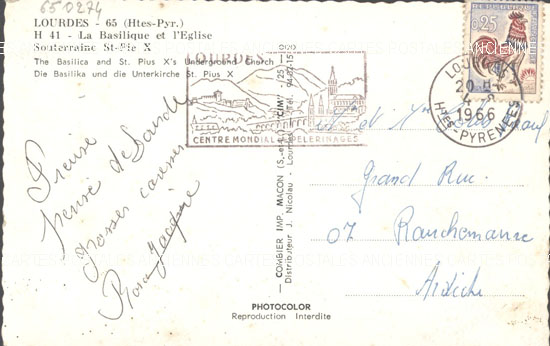 650274
LOURDES - 65 (Htes-Pyr.)
H 41 - La Basilique et l'Eglise
Souterraine St-Pie X
The Basilica and St. Pius X's Underground Church
Die Basilika und die Unterkirche St. Pius X
LOURDES
CENTRE MONDIAL PELERINAGES
0,25
LOURDES
20 H
4
1966
Htes-PYRENEES
Pieuse
pensée de Lourde
Grosses caresses
Rosa Jacqueline
et Mme
Grand Rue
07 Rauchemaure
Ardèche
COMBIER IMP. MACON (S.-et-L.) "CIM"
Distributeur J. Nicolau - Lourdes - Tél. 94-02-15
PHOTOCOLOR
Reproduction Interdite
CARTES POSTALES ANCIENNES